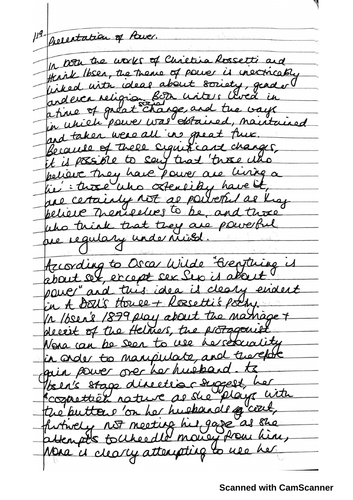 Presentation of Power.
In both the works of Christina Rossetti and
Henrik Ibsen, the theme of power is inextricably
linked with ideas about society, gender
and even religion. Both writers lived in
a time of great social change, and the ways
in which power was obtained, maintained
and taken were all in great flux.
Because of these significant changes,
it is possible to say that 'those who
believe they have power are living a
lie': those who ostensibly have it,
are certainly not as powerful as they
believe themselves to be, and those
who think that they are powerful
are regularly undermined.
According to Oscar Wilde "Everything is
about sex, except sex. Sex is about
power" and this idea is clearly evident
in A Doll's House + Rossetti's poetry.
In Ibsen's 1899 play about the marriage +
deceit of the Helmers, the protagonist
Nora can be seen to use her sexuality
in order to manipulate, and therefore
gain power over her husband. As
Ibsen's stage directions suggest, her
"coquettish nature as she 'plays with
the buttons' on her husbands coat,
furtively not meeting his gaze as she
attempts to wheedle money from him,
Nora is clearly attempting to use her
Scanned with CamScanner